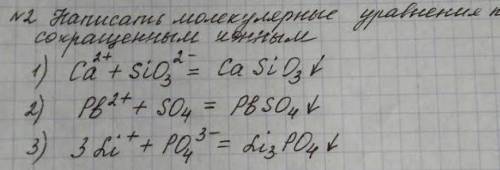 №2 Написать молекулярные уравнения п
сокращенным ионным
1) Ca²⁺ + SiO₃²⁻ = CaSiO₃↓
2) Pb²⁺ + SO₄ = PbSO₄↓
3) 3Li⁺ + PO₄³⁻ = Li₃PO₄↓